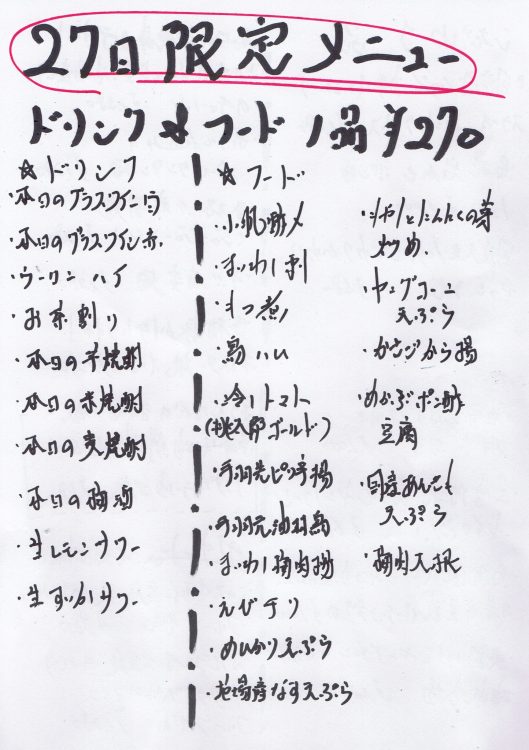 27日限定メニュー
ドリンク & フード 1品 ¥270
☆ドリンク
・本日のグラスワイン白
・本日のグラスワイン赤
・ウーロンハイ
・お茶割り
・本日の芋焼酎
・本日の米焼酎
・本日の麦焼酎
・本日の梅酒
・生レモンサワー
・生すいかサワー
☆フード
・小肌酢〆
・まいわし刺
・もつ煮
・鳥ハム
・冷しトマト
(桃太郎ゴールド)
・手羽先ピリ辛揚
・まいわし梅肉揚
・えびチリ
・めひかり天ぷら
・地場産なす天ぷら
・牛すじとにんにくの芽
炒め
・ヤングコーン
天ぷら
・かさごから揚
・めかぶポン酢
豆腐
・国産あんこう
天ぷら
・梅肉天ぷら